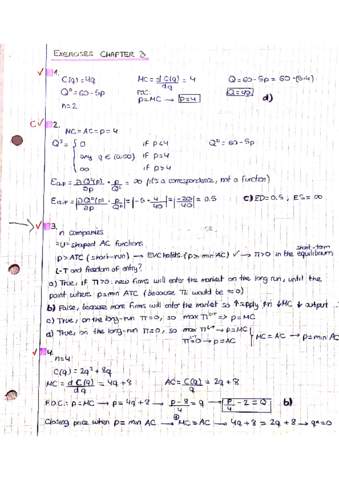 EXERCISES CHAPTER 3
1.
C(q) = 4q MC = dC(q)/dq = 4 Q = 60 - 5p = 60 - 5(4)
Qᴰ = 60 - 5p p = MC → p = 4 Q = 40
n = 2 d)
2.
MC = AC = p = 4
Qˢ = { 0 if p < 4 Qᴰ = 60 - 5p
any q ∈ (0,∞) if p = 4
∞ if p > 4
= ∞ (it's a correspondence, not a function)
= |-5 · 4/40| = |-20/40| = 0.5 c) ED = 0.5, ES = ∞
3.
n companies
"U" shaped AC functions
p > ATC (short-run) → EVC holds (p > min AC) → π > 0 in the short-term equilibrium
L-T and freedom of entry?
a) True, if π > 0 new firms will enter the market on the long run, until the
point where p = min ATC (because π would be = 0)
b) False, because more firms will enter the market so ↑ supply ↓ MC ↓ output
c) True, on the long-run π = 0, so max π ⇒ p = MC
d) True, on the long-run π = 0, so max π → p = MC
π = 0 → p = AC } MC = AC → p = min AC
4.
n = 4
C(q) = 2q² + 8q
MC = dC(q)/dq = 4q + 8 AC = C(q)/q = 2q + 8
F.O.C.: p = MC → p = 4q + 8 → (p - 8)/4 = q → p/4 - 2 = q b)
Closing price when p = min AC → MC = AC → 4q + 8 = 2q + 8 → q* = 0